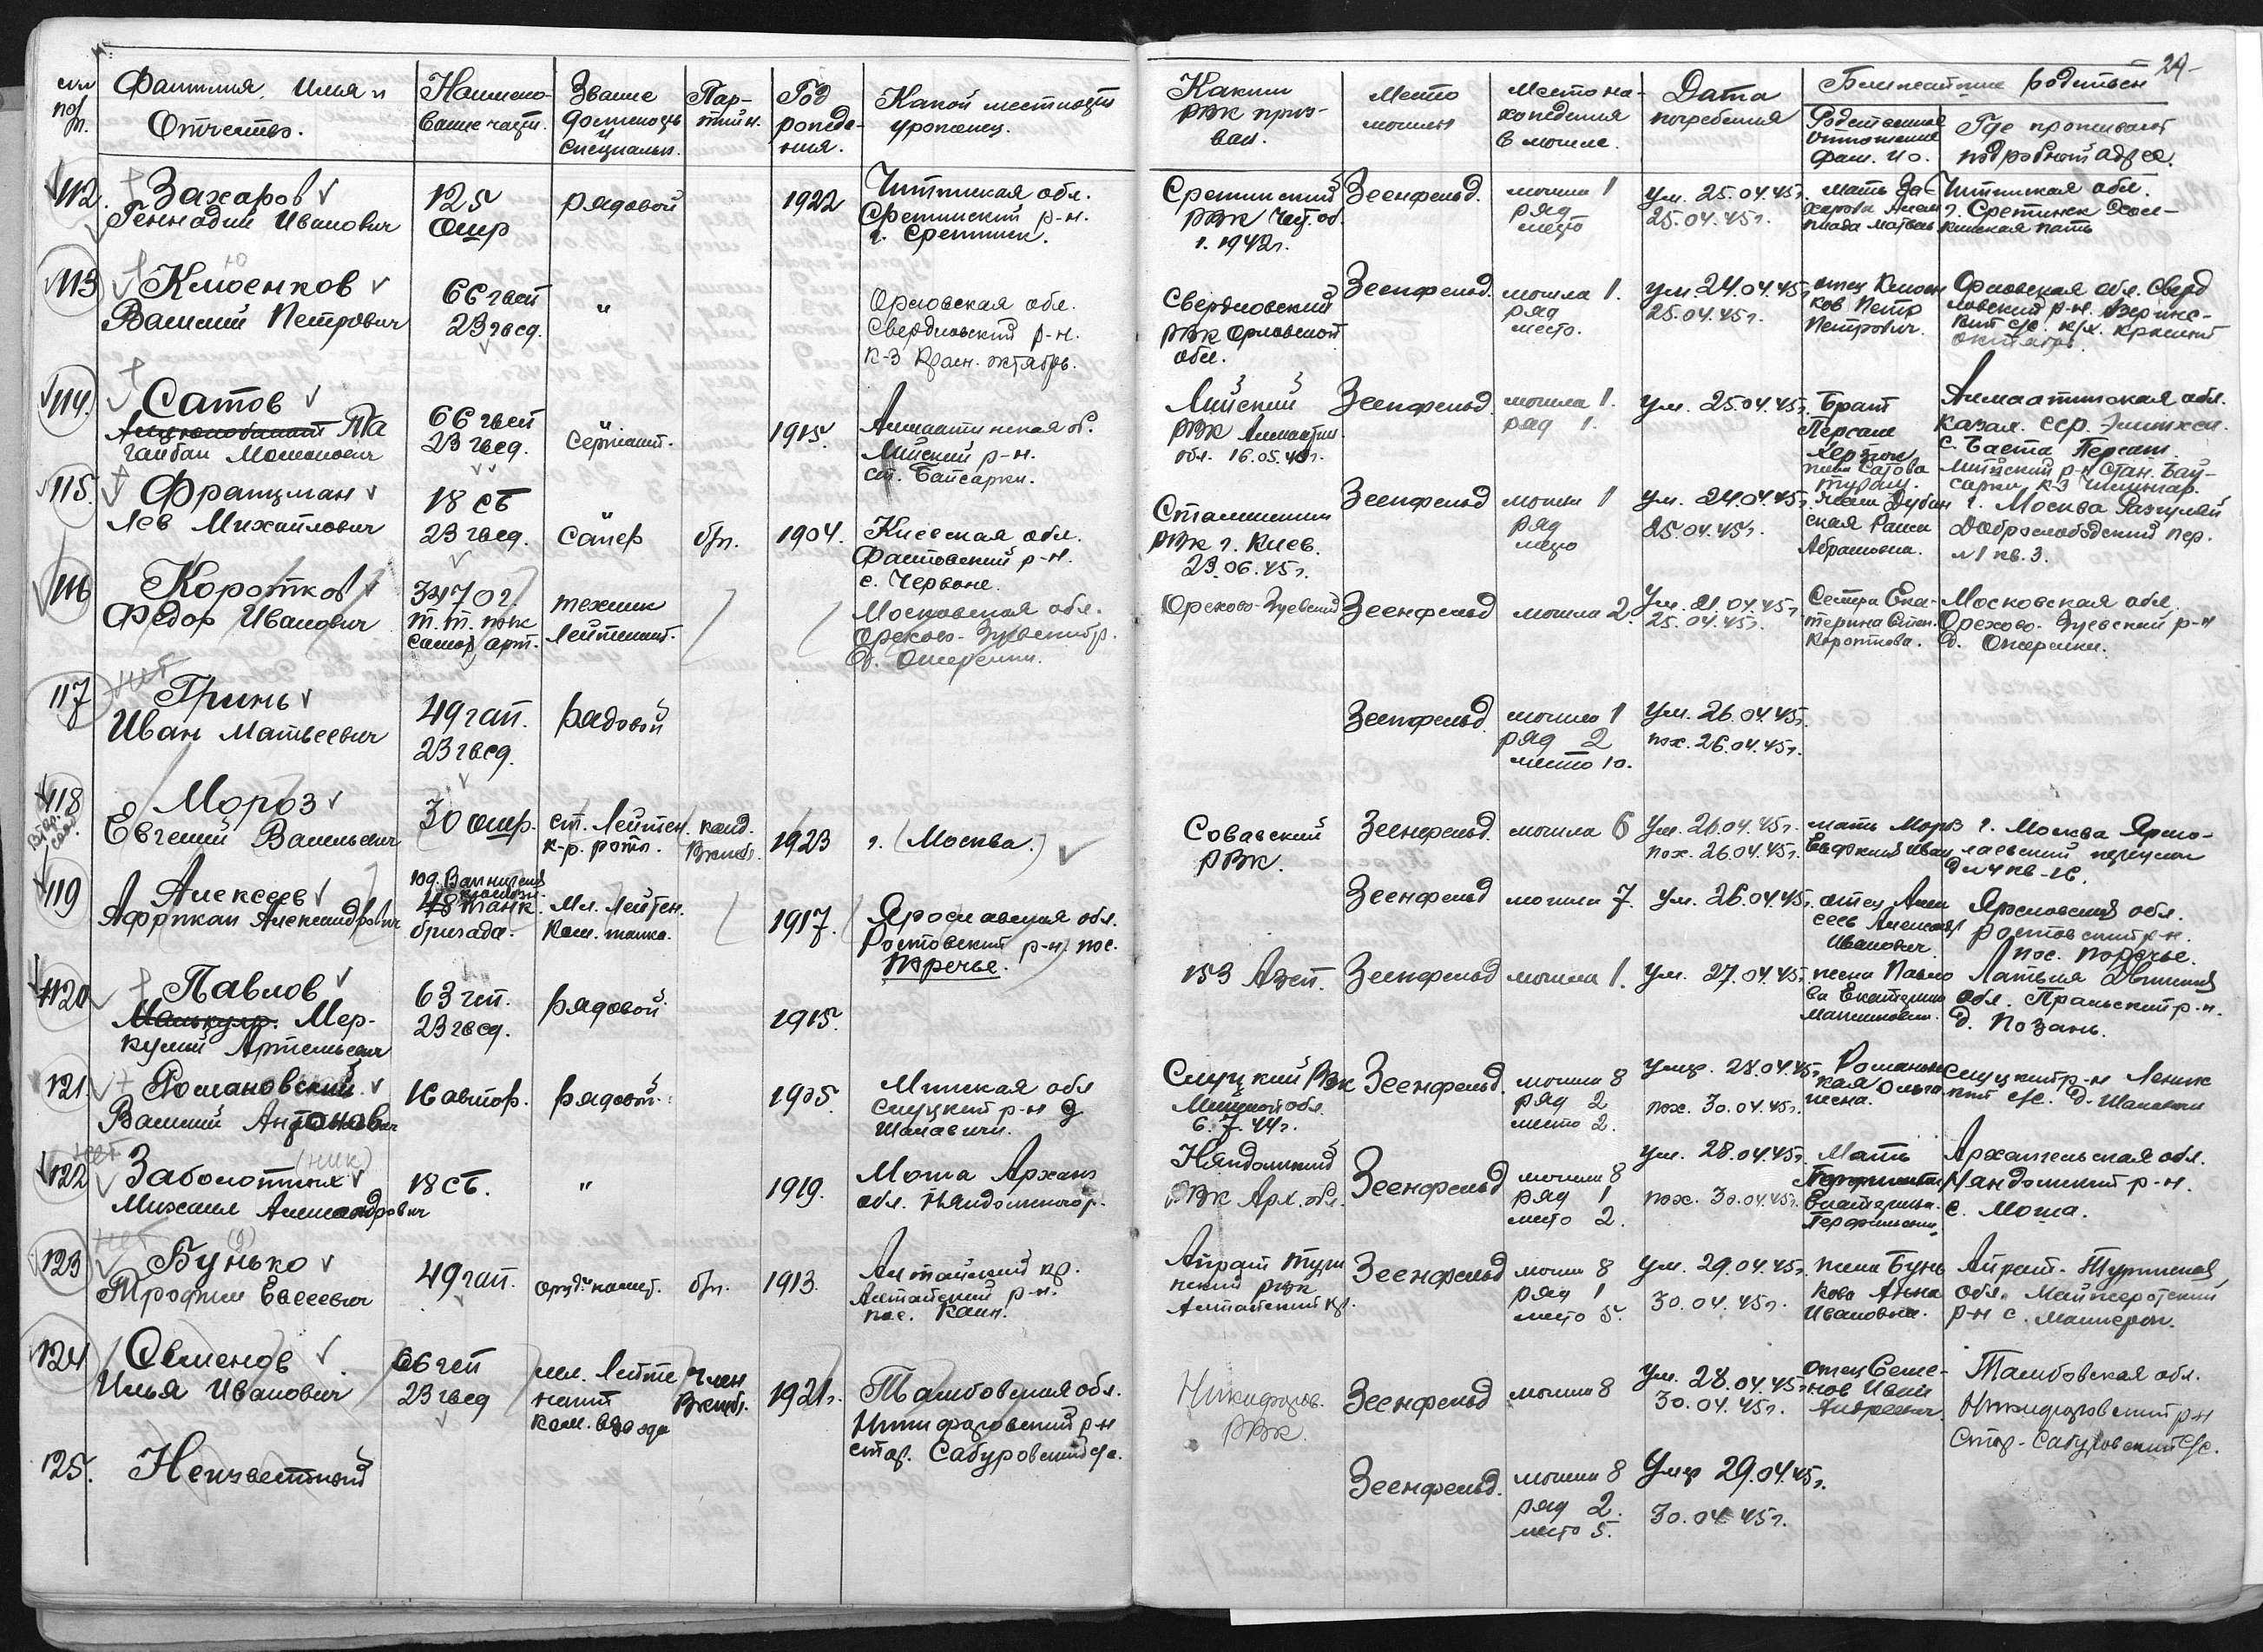 29-
Фамилия, Имя и
Отчество.
Звание
Год
рожде-
ния.
Какой местности
уроженец.
Каким
РВК приз-
ван.
Место
могилы
Место на-
хождения
в могиле.
Дата
погребения
Ближайшие
Родственные
отношения
фам. и о.
Где проживают
подробный адрес.
112. Захаров
Геннадий Иванович
125
ОШР
рядовой
1922
Читинская обл.
Сретинский р-н.
г. Сретинск.
Сретинский
РВК Чит. об.
г. 1942г.
Зеенфельд.
могила 1
ряд
место
Ум. 25.04.45г.
25.04.45г.
мать За-
Читинская обл.
г. Сретинск
113 Клюенков
Василий Петрович
66 гвсп
23 гвсд.
"
Орловская обл.
Свердловский р-н.
к-з Красн. октябрь.
Свердловский
РВК Орловской
обл.
Зеенфельд.
могила 1.
ряд
место.
Ум. 24.04.45г.
25.04.45г.
отец Клюен
ков Петр
Петрович.
Орловская обл. Сверд
ловский р-н.
с/с. к/х. красный
октябрь.
114. Сатов
66 гвсп
23 гвсд.
сержант.
1915.
Алмаатинская о.
Илийский р-н.
ст. Байсарки.
Илийский
РВК Алмаатин.
обл. 16.05.
Зеенфельд.
могила 1.
ряд 1.
Ум. 25.04.45г.
Брат
Сатова
Алмаатинская обл.
Казах. сср.
Илийский р-н стан. Бай-
сарки к-з
115. Францман
Лев Михайлович
18 СБ
23 гвсд.
сапер
б/п.
1904.
Киевская обл.
Фастовский р-н.
с. Червоне.
Сталинским
РВК г. Киев.
23.06.45г.
Зеенфельд
могила 1
ряд
место
Ум. 24.04.45г.
25.04.45г.
Дубин
ская Раиса
Абрамовна.
г. Москва Разгуляй
Доброслободский пер.
№1 кв. 3.
116 Коротков
Федор Иванович
т.т. полк
самох арт.
техник
Лейтенант.
Московская обл.
Орехово-Зуевский р.
д. Ожерелки.
Орехово-Зуевский
Зеенфельд
могила 2.
Ум. 21.04.45г.
25.04.45г.
Сестра Ека-
терина Степ.
Короткова.
Московская обл.
Орехово-Зуевский р-н
д. Ожерелки.
нет
117 Гринь
Иван Матвеевич
49 гап.
23 гвсд.
рядовой
Зеенфельд
могила 1
ряд 2
место 10.
Ум. 26.04.45г.
пох. 26.04.45г.
118 Мороз
Евгений Васильевич
30 ошр.
ст. Лейтен.
к-р. роты.
канд.
Вкпб.
1923
г. Москва.
РВК.
Зеенфельд.
могила 6
Ум. 26.04.45г.
пох. 26.04.45г.
мать Мороз
г. Москва Ярос-
лавский
д. 4 кв-16.
119 Алексеев
Африкан Александрович
танк.
бригада.
Мл. Лейтен.
Ком. танка.
1917.
Ярославская обл.
Ростовский р-н. пос.
Поречье.
Зеенфельд
могила 7.
Ум. 26.04.45г.
отец Алек
сеев Александр
Иванович.
Ярославский обл.
ростовский р-н.
пос. Поречье.
120 Павлов
Мер-
курий Артемьевич
63 гсп.
23 гвсд.
рядовой
1915.
153 Азсп.
Зеенфельд
могила 1.
Ум. 27.04.45г.
жена Павло
ва Екатерина
Латвия Двинский
обл.
д. Позань.
121. Романовский
Василий Антонович
16 автор.
рядовой.
1905.
Минская обл
Слуцкий р-н д
Шалавичи.
Слуцкий РВК
Минской обл.
6.7.44г.
Зеенфельд.
могила 8
ряд 2
место 2.
Умер. 28.04.45г.
пох. 30.04.45г.
Романовс
кая Ольга
жена.
Слуцкий р-н Ленин
ский с/с. д. Шалавичи
нет
(ник)
122 Заболотных
Михаил Александрович
18 СБ.
"
1919.
Моша Арханг
обл. Няндомского р.
Няндомский
РВК Арх. обл.
Зеенфельд
могила 8
ряд 1
место 2.
Ум. 28.04.45г.
пох. 30.04.45г.
Мать
Екатерина
Архангельская обл.
Няндомский р-н.
с. Моша.
нет
123 Бунько
Трофим Евсеевич
49 гап.
б/п.
1913.
Алтайский кр.
Алтайский р-н.
пос. Каин.
РВК
Алтайский кр.
Зеенфельд
могила 8
ряд 1
место 5.
Ум. 29.04.45г.
30.04.45г.
жена Бунь
кова Анна
Ивановна.
обл.
р-н с.
124 Семенов
Илья Иванович
66 гсп
23 гвсд
мл. Лейте
нант
ком. взвода
Член
Вкпб.
1921г.
Тамбовская обл.
Никифоровский р-н
стар. Сабуровский с/с.
Никифоров.
РВК.
Зеенфельд
могила 8
Ум. 28.04.45г.
30.04.45г.
отец Семе-
нов Иван
Андреевич
Тамбовская обл.
Никифоровский р-н
Стар-Сабуровский с/с.
125. Неизвестный
Зеенфельд.
могила 8
ряд 2.
место 5.
Умер 29.04.45г.
30.04.45г.